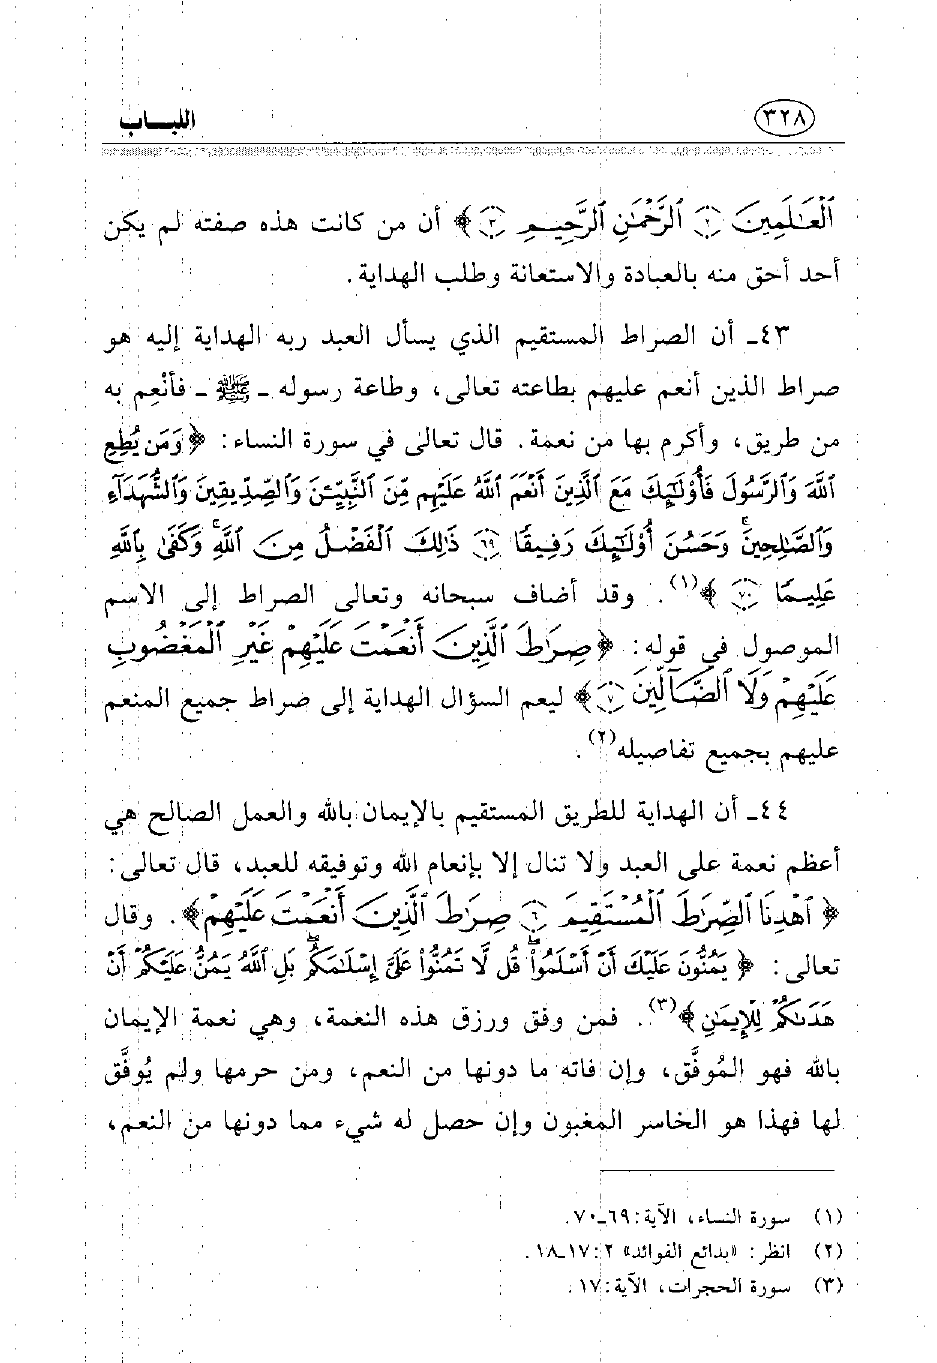 ٣٢٨
اللبـــاب
ٱلْعَـٰلَمِينَ ۝٢ ٱلرَّحْمَـٰنِ ٱلرَّحِيـمِ ۝٣﴾ أن من كانت هذه صفته لم يكن
أحد أحق منه بالعبادة والاستعانة وطلب الهداية.
٤٣ـ أن الصراط المستقيم الذي يسأل العبد ربه الهداية إليه هو
صراط الذين أنعم عليهم بطاعته تعالى، وطاعة رسوله ـ ﷺ ـ فأنْعِم به
من طريق، وأكرم بها من نعمة. قال تعالى في سورة النساء: ﴿وَمَن يُطِعِ
ٱللَّهَ وَٱلرَّسُولَ فَأُو۟لَـٰٓئِكَ مَعَ ٱلَّذِينَ أَنْعَمَ ٱللَّهُ عَلَيْهِم مِّنَ ٱلنَّبِيِّـۧنَ وَٱلصِّدِّيقِينَ وَٱلشُّهَدَآءِ
وَٱلصَّـٰلِحِينَ ۚ وَحَسُنَ أُو۟لَـٰٓئِكَ رَفِيقًا ۝٦٩ ذَٰلِكَ ٱلْفَضْلُ مِنَ ٱللَّهِ ۚ وَكَفَىٰ بِٱللَّهِ
عَلِيمًا ۝٧٠﴾(١). وقد أضاف سبحانه وتعالى الصراط إلى الاسم
الموصول في قوله: ﴿صِرَٰطَ ٱلَّذِينَ أَنْعَمْتَ عَلَيْهِمْ غَيْرِ ٱلْمَغْضُوبِ
عَلَيْهِمْ وَلَا ٱلضَّآلِّينَ ۝٧﴾ ليعم السؤال الهداية إلى صراط جميع المنعم
عليهم بجميع تفاصيله(٢).
٤٤ـ أن الهداية للطريق المستقيم بالإيمان بالله والعمل الصالح هي
أعظم نعمة على العبد ولا تنال إلا بإنعام الله وتوفيقه للعبد، قال تعالى:
﴿ٱهْدِنَا ٱلصِّرَٰطَ ٱلْمُسْتَقِيمَ ۝٦ صِرَٰطَ ٱلَّذِينَ أَنْعَمْتَ عَلَيْهِمْ﴾. وقال
تعالى: ﴿يَمُنُّونَ عَلَيْكَ أَنْ أَسْلَمُوا۟ ۖ قُل لَّا تَمُنُّوا۟ عَلَىَّ إِسْلَـٰمَكُم ۖ بَلِ ٱللَّهُ يَمُنُّ عَلَيْكُمْ أَنْ
هَدَىٰكُمْ لِلْإِيمَـٰنِ﴾(٣). فمن وفق ورزق هذه النعمة، وهي نعمة الإيمان
بالله فهو المُوفَّق، وإن فاته ما دونها من النعم، ومن حرمها ولم يُوفَّق
لها فهذا هو الخاسر المغبون وإن حصل له شيء مما دونها من النعم،
(١) سورة النساء، الآية: ٦٩ـ٧٠.
(٢) انظر: «بدائع الفوائد» ٢: ١٧ـ١٨.
(٣) سورة الحجرات، الآية: ١٧.